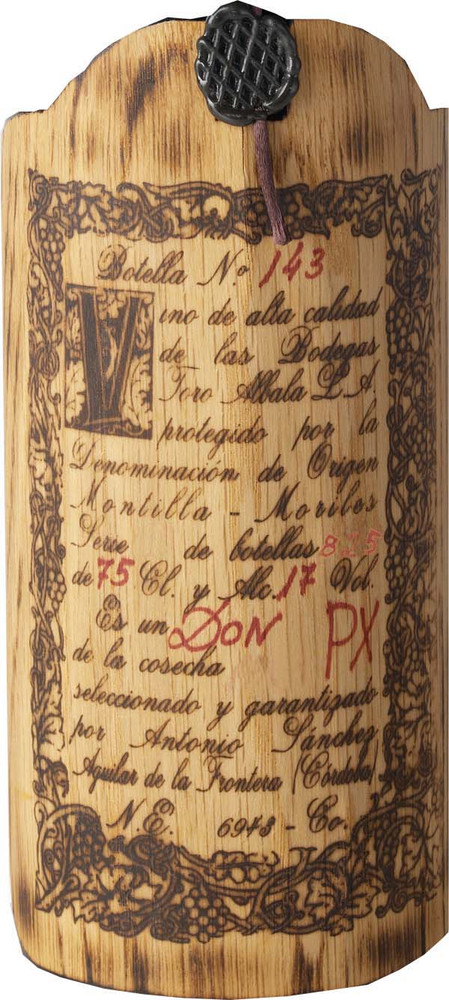 Botella Nº 143
Vino de alta calidad
de las Bodegas
Toro Albala S.A.
protegido por la
Denominación de Origen
Montilla - Moriles
Serie de botellas 825
de 75 Cl. y Alc. 17 Vol.
Es un DON PX
de la cosecha
seleccionado y garantizado
por Antonio Sánchez
Aguilar de la Frontera (Córdoba)
N.E. 6943 - Co.